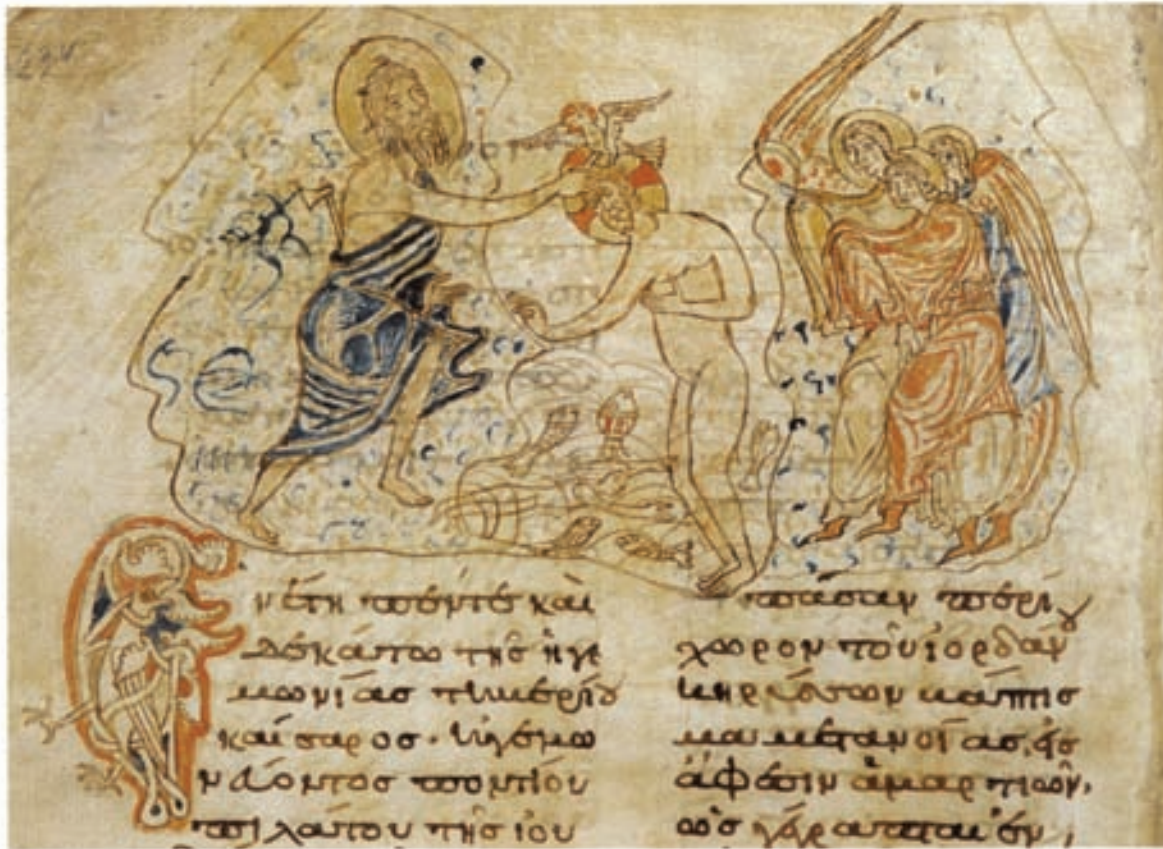 Εν ἔτη πέντε καὶ
δεκάτω τῆς ἡγε
μωνίας τιβερίου
καίσαρος· ἡγεμω
νέοντος ποντίου
πιλάτου τῆς ἰου
πᾶσαν περί
χωρον τοῦ ἰορδάν
κηρύσων βάπτισ
μα μετανοίας, εἰς
ἄφεσιν ἁμαρτιῶν,
ὡς γέγραπται ἐν